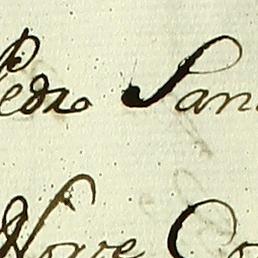 Pedro San
Nove Co